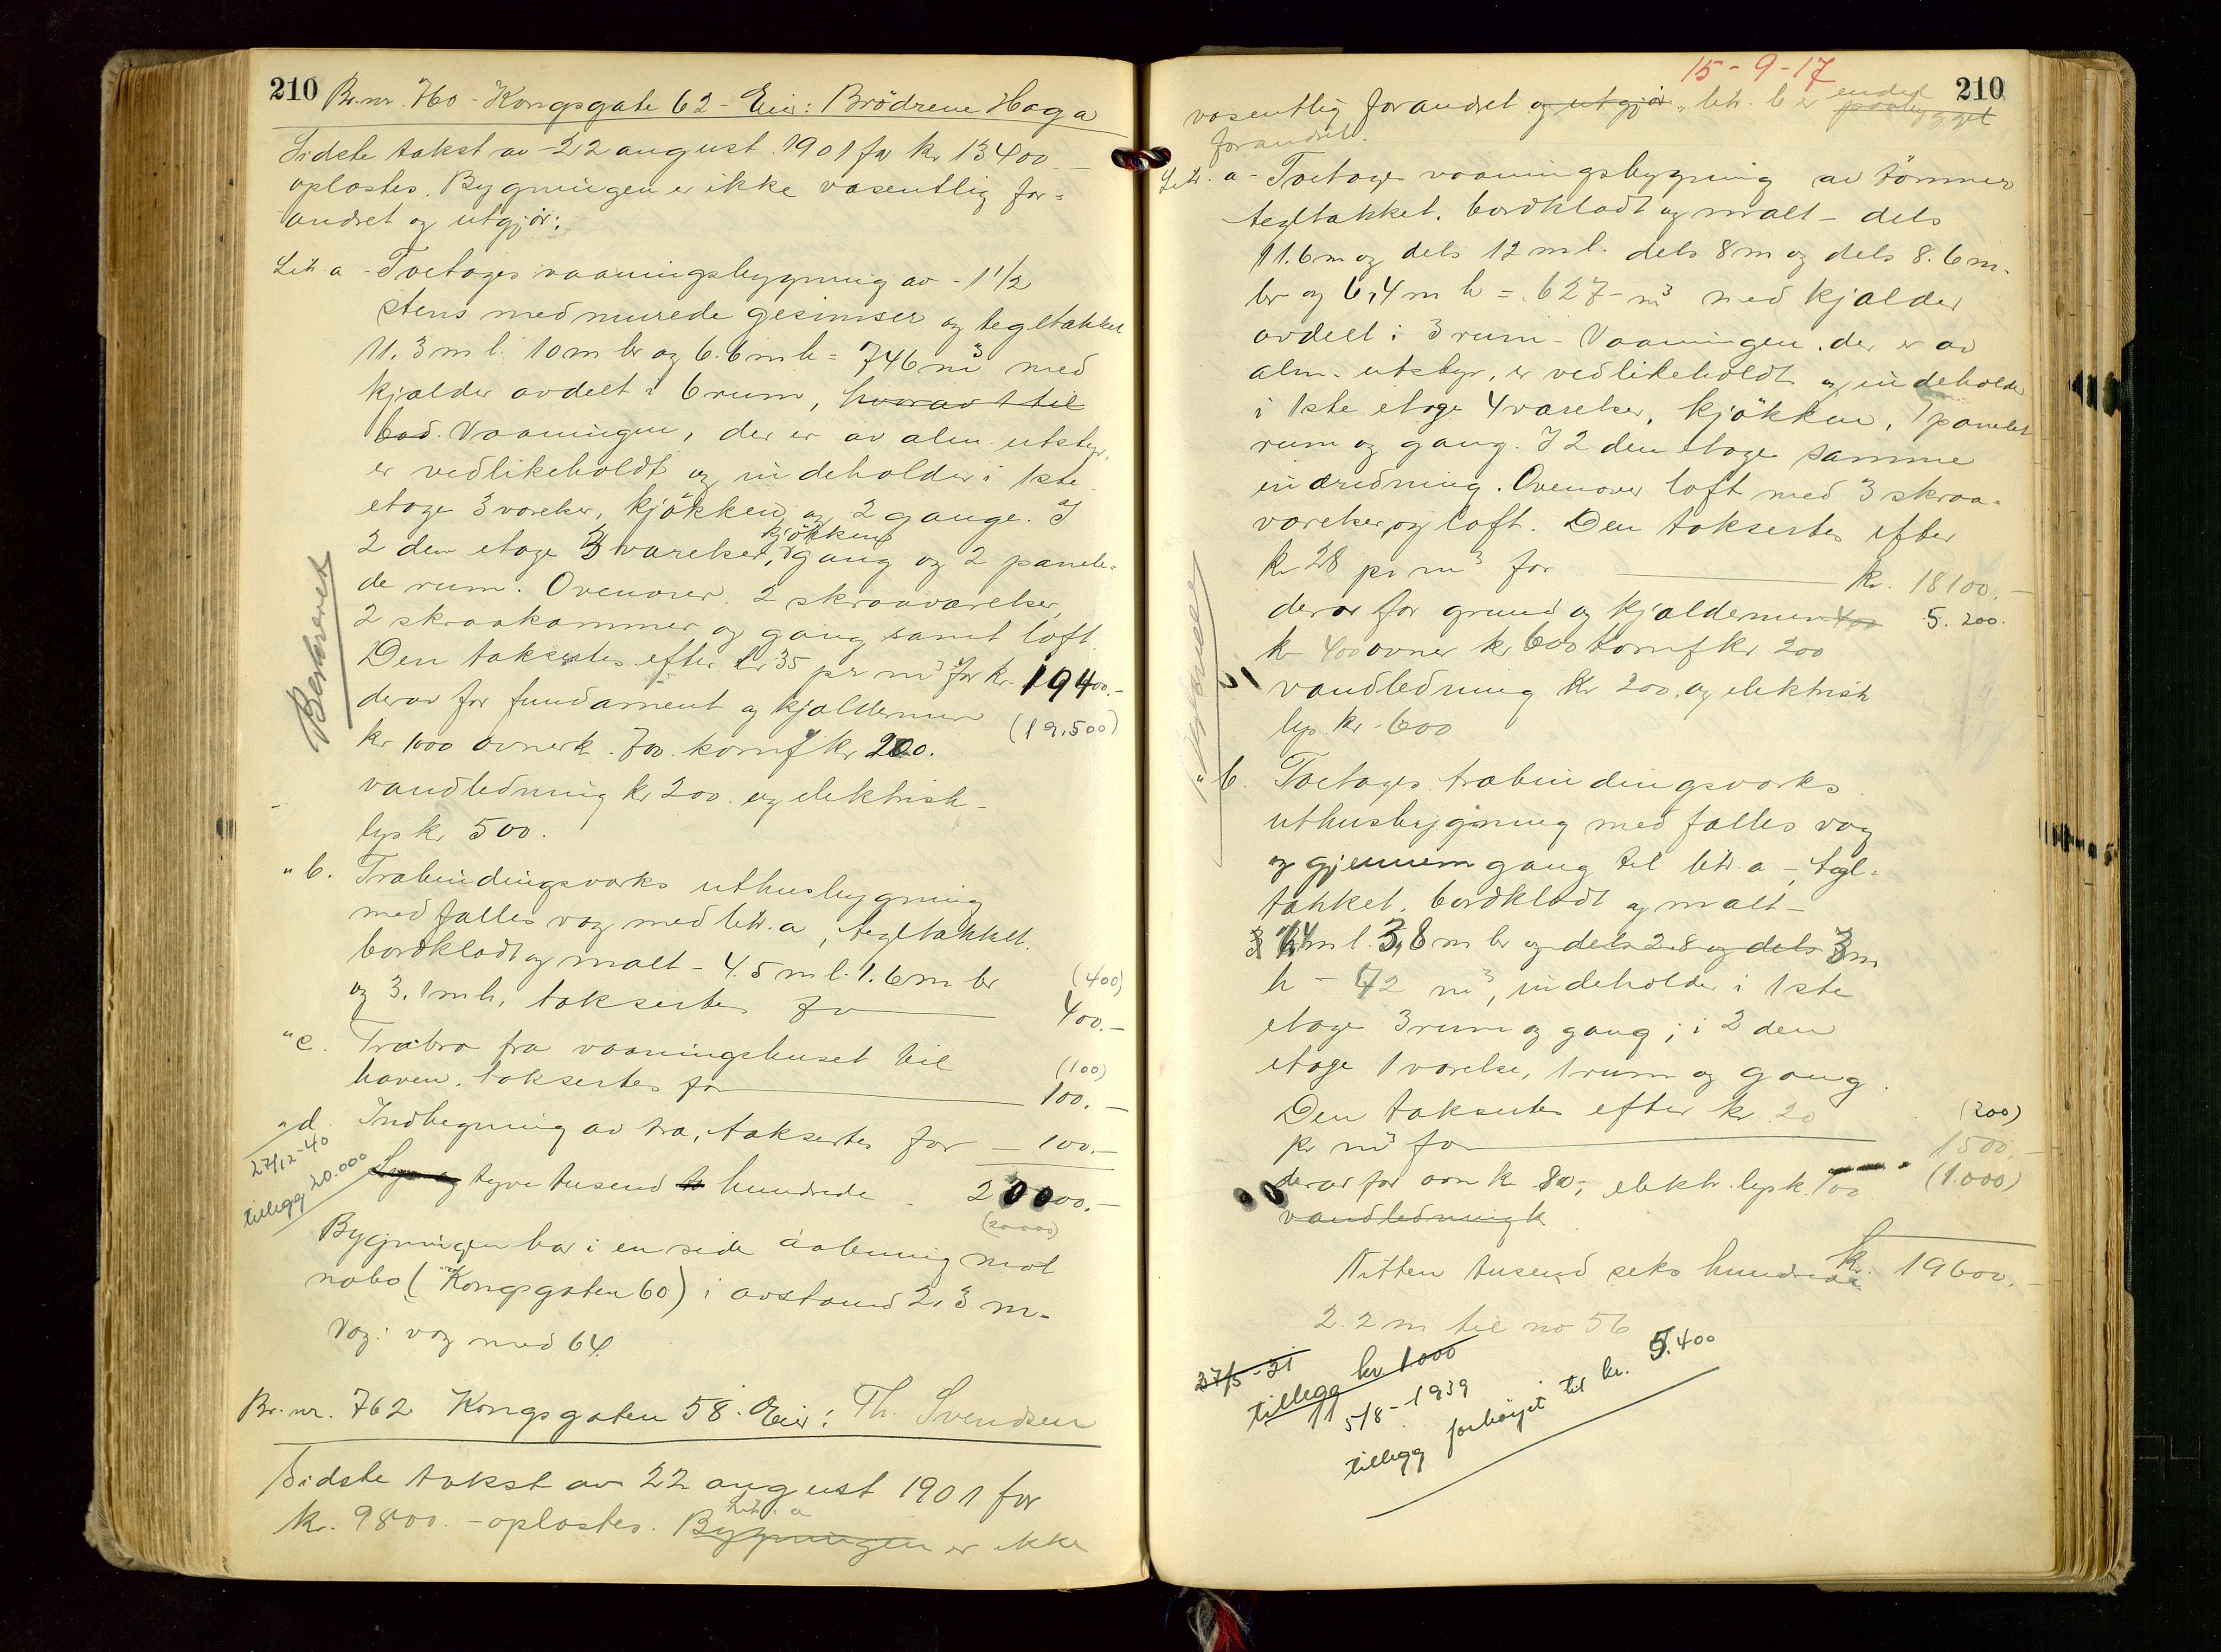 210 Br.nr. 760 - Kongsgate 62 - Eier: Brödrene Haga
Sidste takst av 22 august 1901 for kr 13400.-
oplæstes. Bygningen er ikke væsentlig for-
andret og utgjör:
Litr. a - Toetages vaaningsbygning av - 1 1/2
stens med murede gesimser og tegltækket
11.3 m l. 10 m br og 6.6 m h = 746 m³ med
kjælder avdelt i 6 rum, hvorav 1 til
bad. Vaaningen, der er av alm. utstyr,
er vedlikeholdt og indeholder i 1ste
etage 3 værelser, kjökken og 2 gange. I
2 den etage 3 værelser, kjökken gang og 2 panele-
de rum. Ovenover 2 skraaværelser,
2 skraakammer og gang samt loft.
Den takseres efter kr 35 pr m³ for kr. 19400.-
derav for fundament og kjældermur (19,500)
kr 1000 ovner k. 700. komf kr 200.
vandledning kr 200. og elektrisk
lys kr 500.
Bestrevet
" b. Træbindingsværks uthusbygning
med fælles væg med litr. a, tegltækket.
bordklædt og malt - 4.5 m l. 1.6 m br (400)
og 3.1 m h, takseres for 400.-
" c. Træbro fra vaaningshuset til
haven. takseres for (100) 100.-
" d. Indhegning av træ, takseres for - 100.-
27/12-40
tillegg 20.000
tyve tusend hundrede - 20000.-
(20000)
Bygningen har i en side aabning mot
nabo (Kongsgaten 60) i avstand 2,3 m-
Væg i væg med 64.
Br.nr. 762 Kongsgaten 58. Eier: Th. Svendsen
Sidste takst av 22 august 1901 for
kr. 9800. - oplæstes. Bygningen Litr. a er ikke
15-9-17
210
væsentlig forandret og utgjör " litr. b er endel paabygget
forandret.
Litr. a - Toetages vaaningsbygning av tömmer
tegltækket. bordklædt og malt - dels
11.6 m og dels 12 m l. dels 8 m og dels 8.6 m.
br og 6,4 m h = 627 - m³ med kjælder
avdelt i 3 rum - Vaaningen, der er av
alm. utstyr, er vedlikeholdt og indeholder
i 1ste etage 4 værelser, kjökken, 1 panelet
rum og gang. I 2 den etage samme
indredning. Ovenover loft med 3 skraa-
værelser og loft. Den takseres efter
kr 28 pr m³ for kr. 18100.-
derav for grund og kjældermur 400 5.200.
kr 400 ovner kr 600 komf kr 200
vandledning kr 200. og elektrisk
lys. kr. 600
" b. Toetages træbindingsværks
uthusbygning med fælles væg
og gjennemgang til litr. a -, tegl-
tækket. bordklædt og malt -
6,4 m l. 3,8 m br og dels 2.8 og dels 3 m
h - 72 m³, indeholder i 1ste
etage 3 rum og gang; i 2 den
etage 1 værelse, 1 rum og gang.
Den takseres efter kr. 20 (200)
pr m³ for 1500.-
derav for ovn k 80,- elektr. lys k. 100 (1.000)
vandledning k
Nitten tusend seks hundrede kr. 19600.-
2.2 m til no 56
27/5-21
tillegg kr 1000
5/8-1939
tillegg forhöiet til kr. 5.400